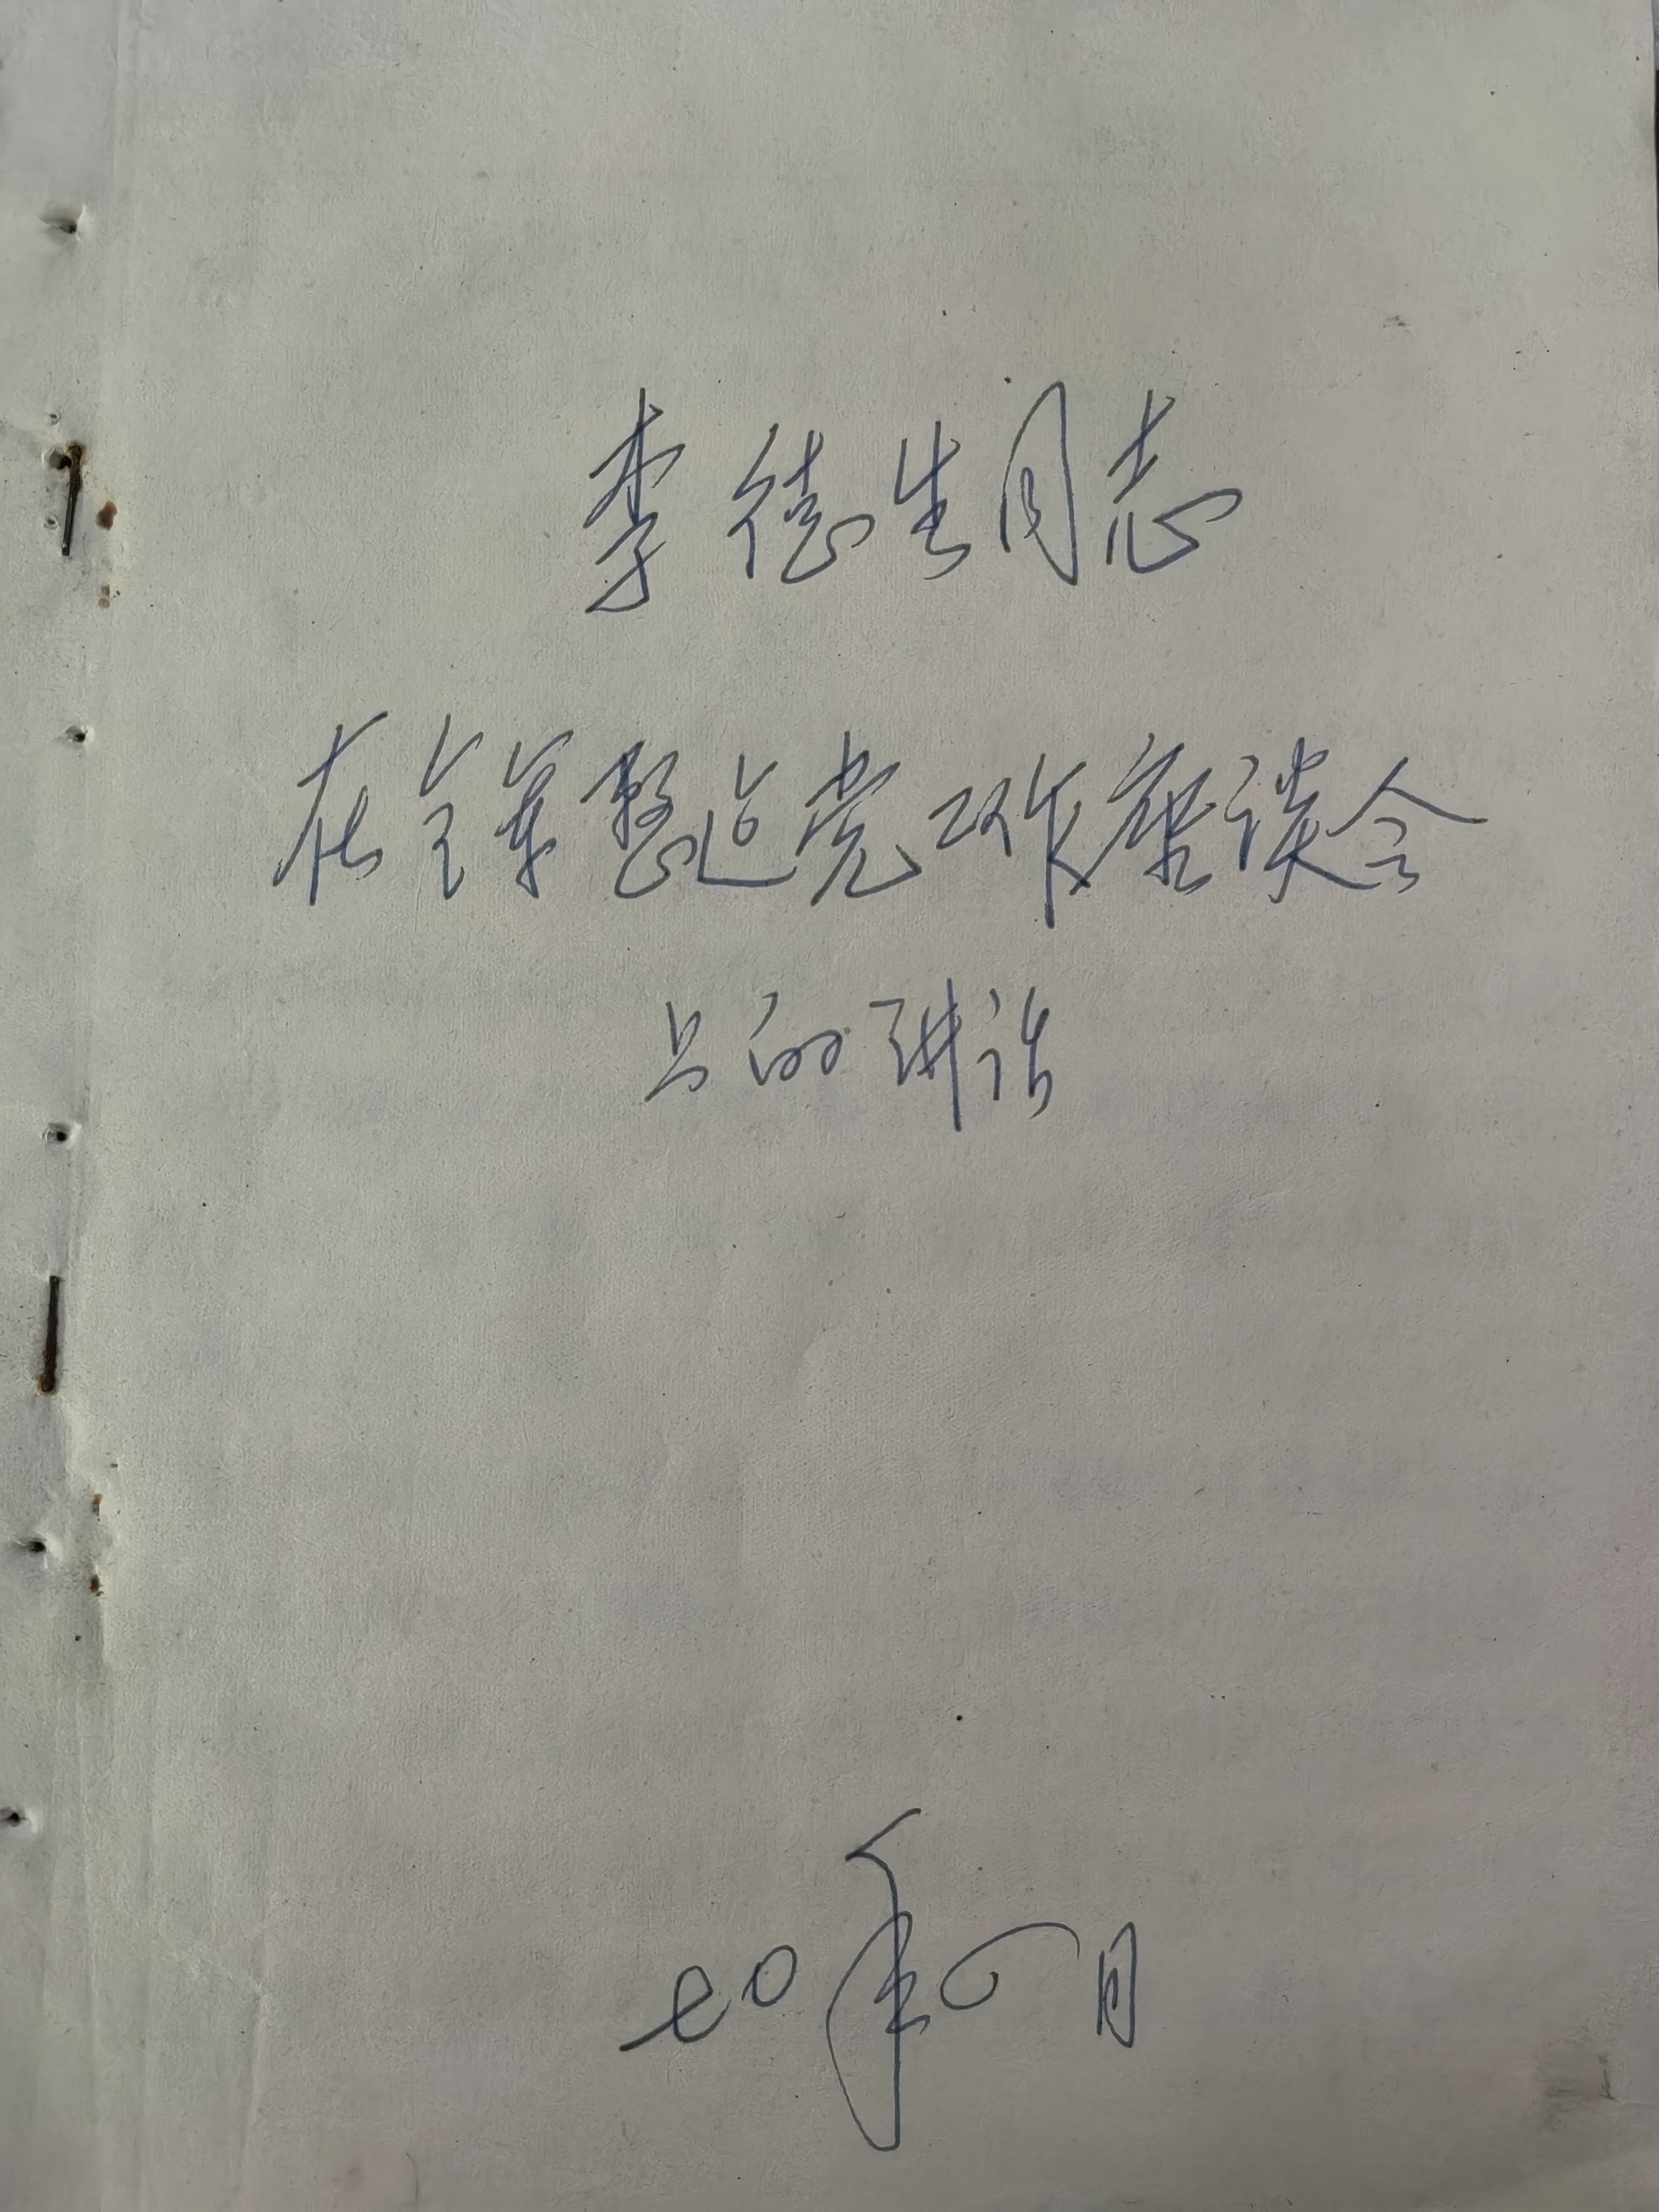 李德生同志
在全军整建党工作座谈会
上的讲话
七〇年六月